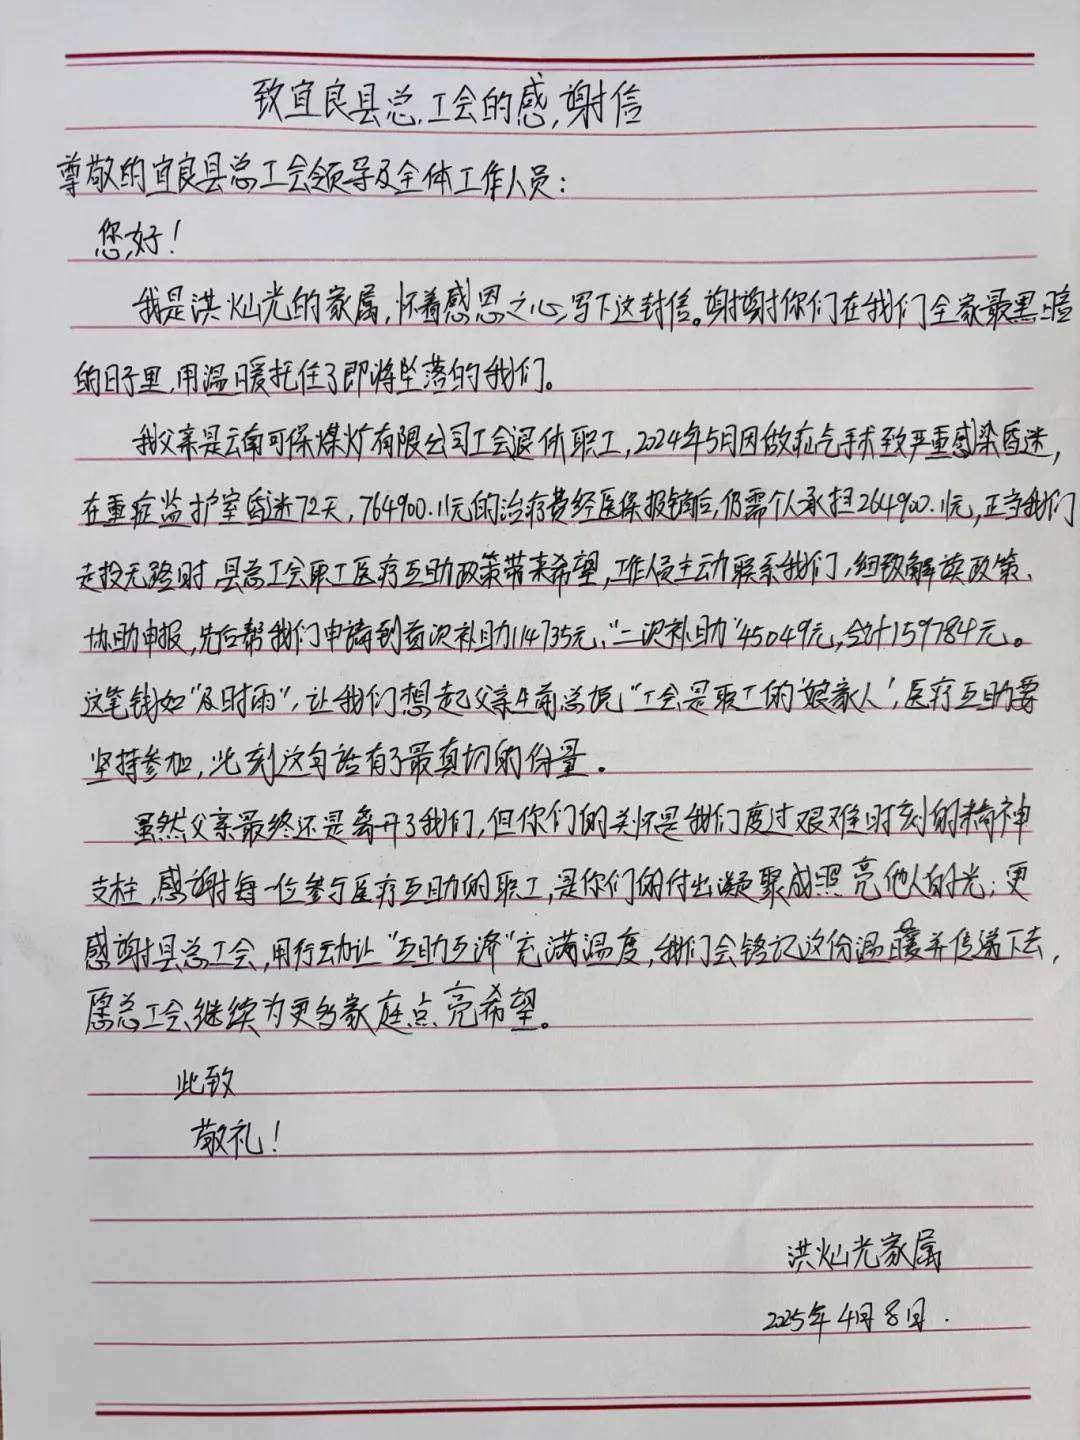 致宜良县总工会的感谢信
尊敬的宜良县总工会领导及全体工作人员：
您好！
我是洪灿光的家属，怀着感恩之心写下这封信。谢谢你们在我们全家最黑暗
的日子里，用温暖托住了即将坠落的我们。
我父亲是云南可保煤矿有限公司工会退休职工，2024年5月因做疝气手术致严重感染昏迷，
在重症监护室昏迷72天，764900.11元的治疗费经医保报销后，仍需个人承担264900.11元，正当我们
走投无路时，县总工会职工医疗互助政策带来希望，工作人员主动联系我们，细致解读政策、
协助申报，先后帮我们申请到首次补助114735元、“二次补助”45049元，合计159784元。
这笔钱如“及时雨”，让我们想起父亲生前总说“工会是职工的‘娘家人’，医疗互助要
坚持参加，此刻这句话有了最真切的份量。
虽然父亲最终还是离开了我们，但你们的关怀是我们度过艰难时刻的精神
支柱，感谢每一位参与医疗互助的职工，是你们的付出凝聚成照亮他人的光；更
感谢县总工会，用行动让“互助互济”充满温度，我们会铭记这份温暖并传递下去，
愿总工会继续为更多家庭点亮希望。
此致
敬礼！
洪灿光家属
2025年4月8日.